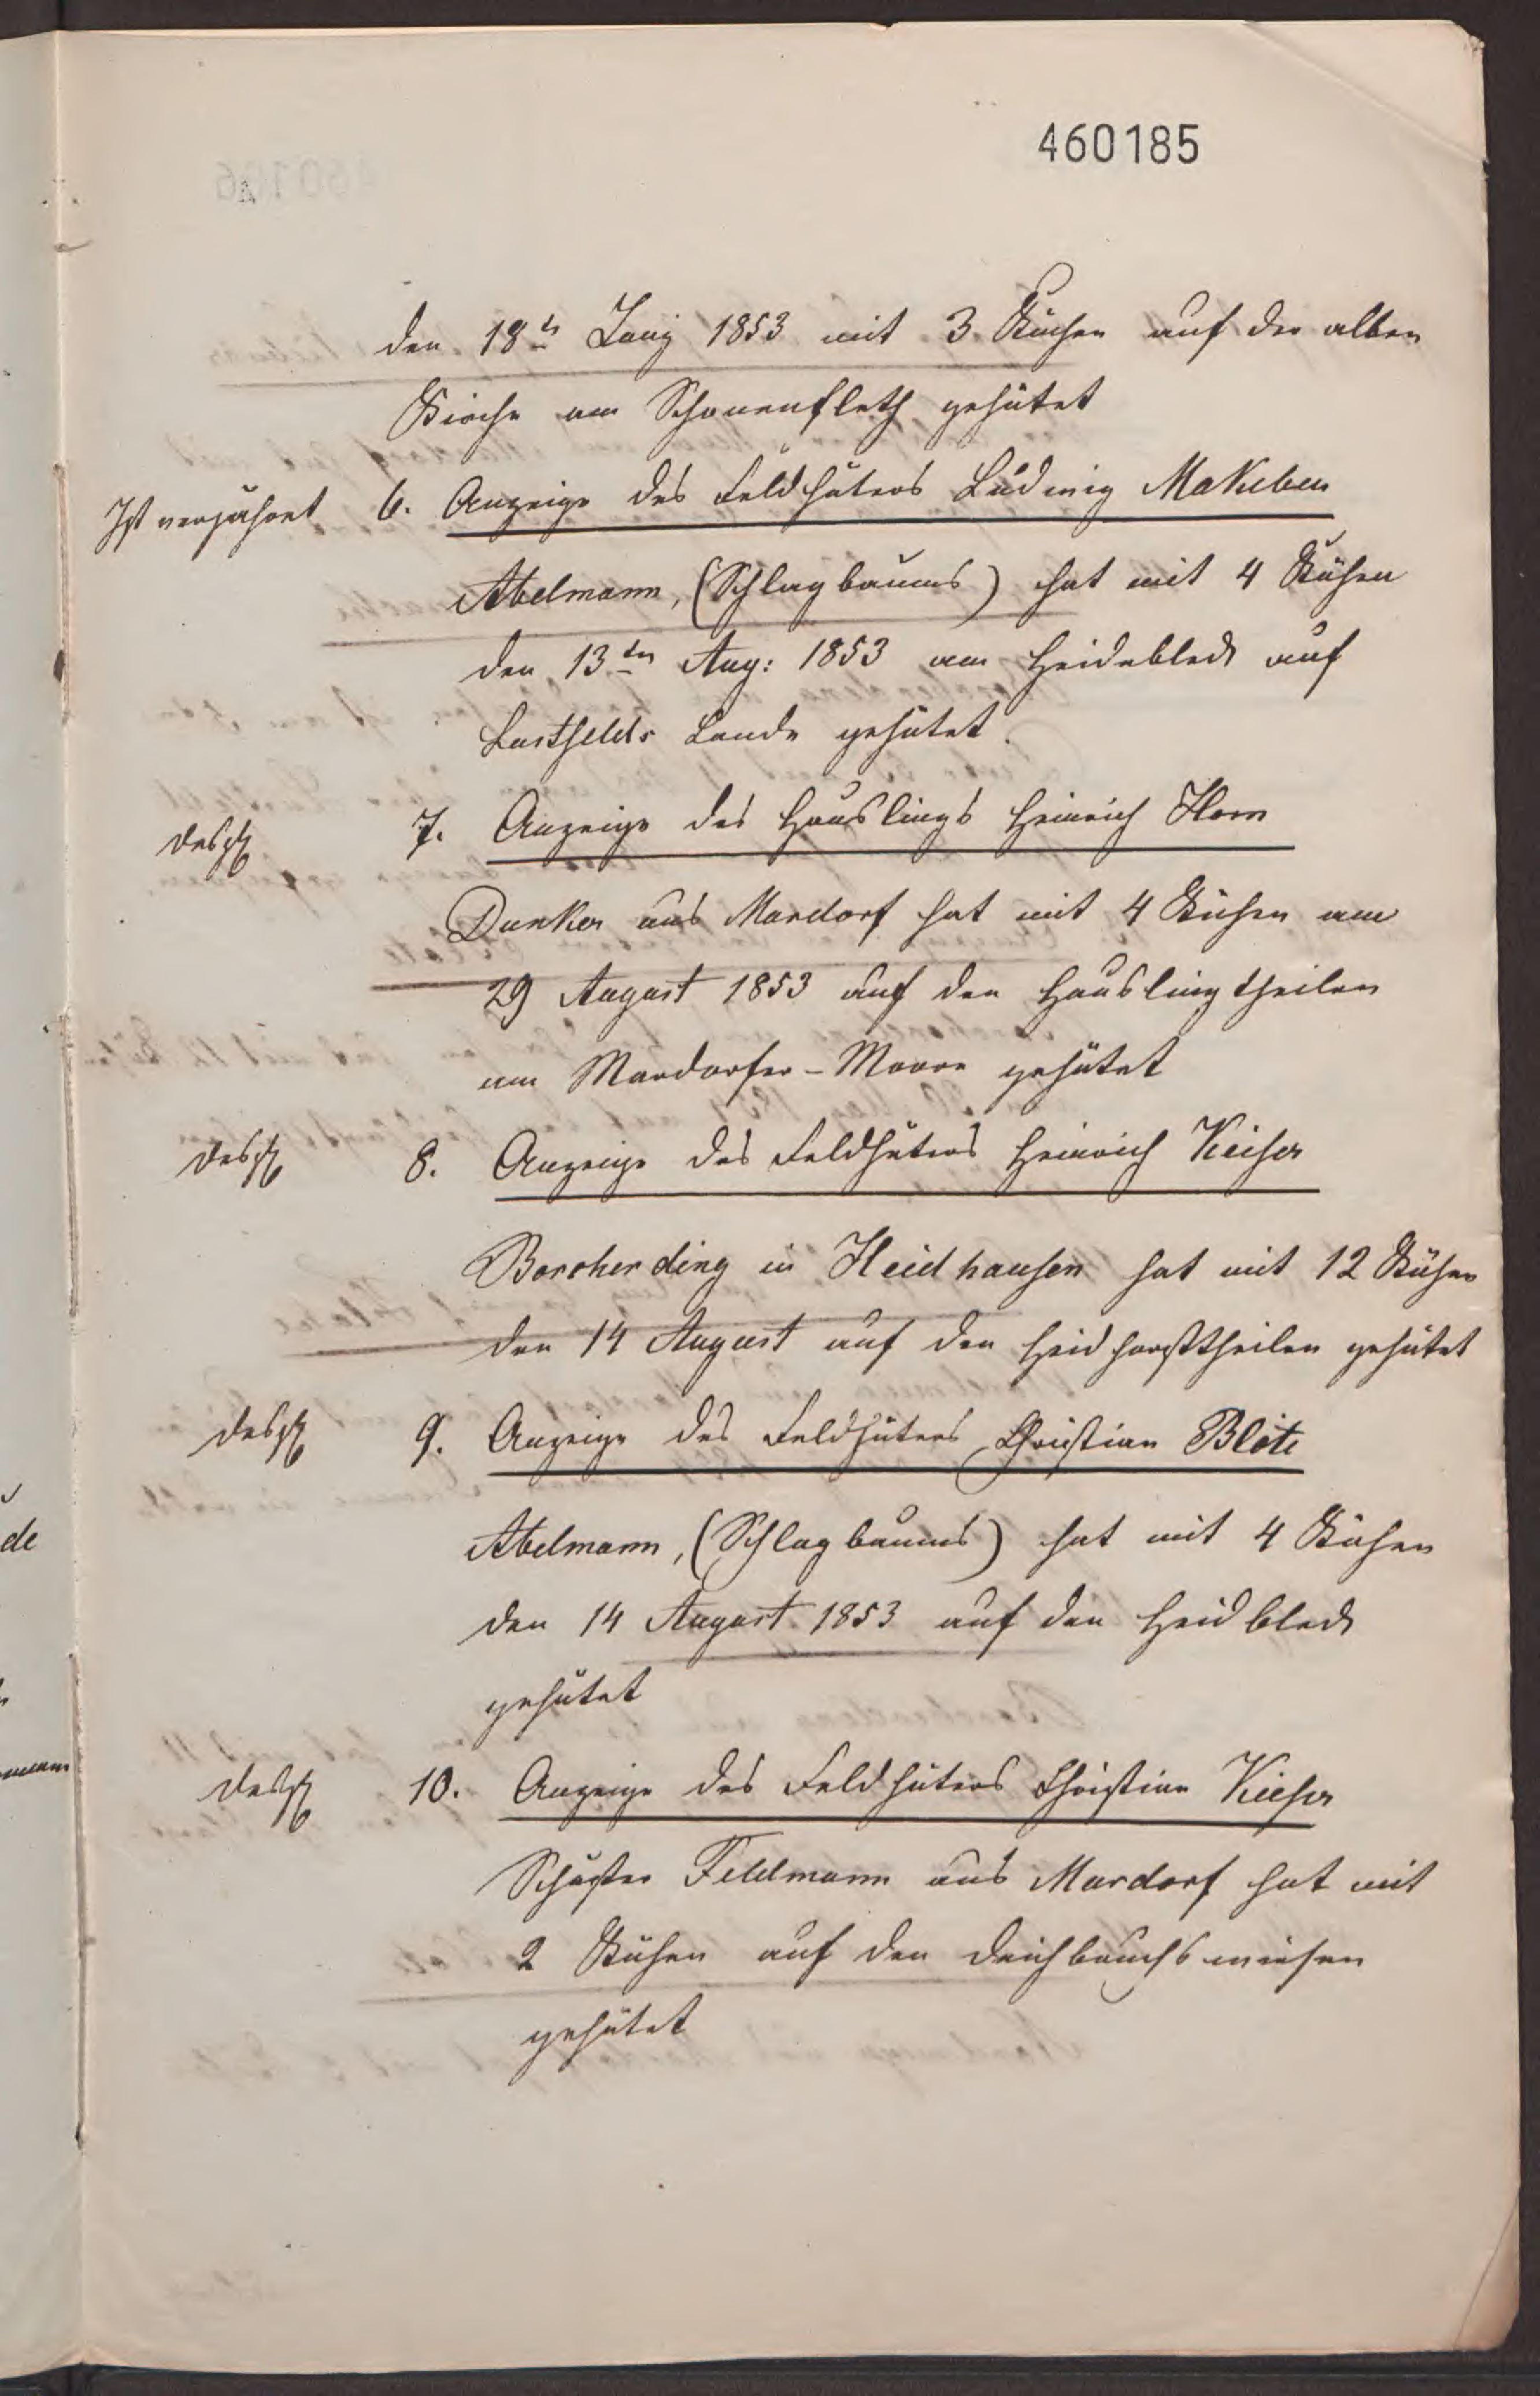 460185
den 18ᵗ Juny 1853 mit 3 Kühen auf der alten
Kirche am Schonenfleth gehütet
Ist verjährt 6. Anzeige des Feldhüters Ludwig Makeben
Abelmann, (Schlagbaums) hat mit 4 Kühen
den 13ten Aug: 1853 am Heideblek auf
Lustfelds Lande gehütet.
desgl 7. Anzeige des Häuslings Heinrich Horn
Dunker aus Mardorf hat mit 4 Kühen am
29 August 1853 auf den Häuslingtheilen
am Mardorfer-Moore gehütet
desgl 8. Anzeige des Feldhüters Heinrich Keiser
Borcherding in Heidhausen hat mit 12 Kühen
den 14 August auf den Heidhorsttheilen gehütet
desgl 9. Anzeige des Feldhüters Christian Blöte
Abelmann, (Schlagbaums) hat mit 4 Kühen
den 14 August 1853 auf den Heidblek
gehütet
desgl 10. Anzeige des Feldhüters Christian Kieser
Schuster Feldmann aus Mardorf hat mit
2 Kühen auf den Deichbruchswiesen
gehütet